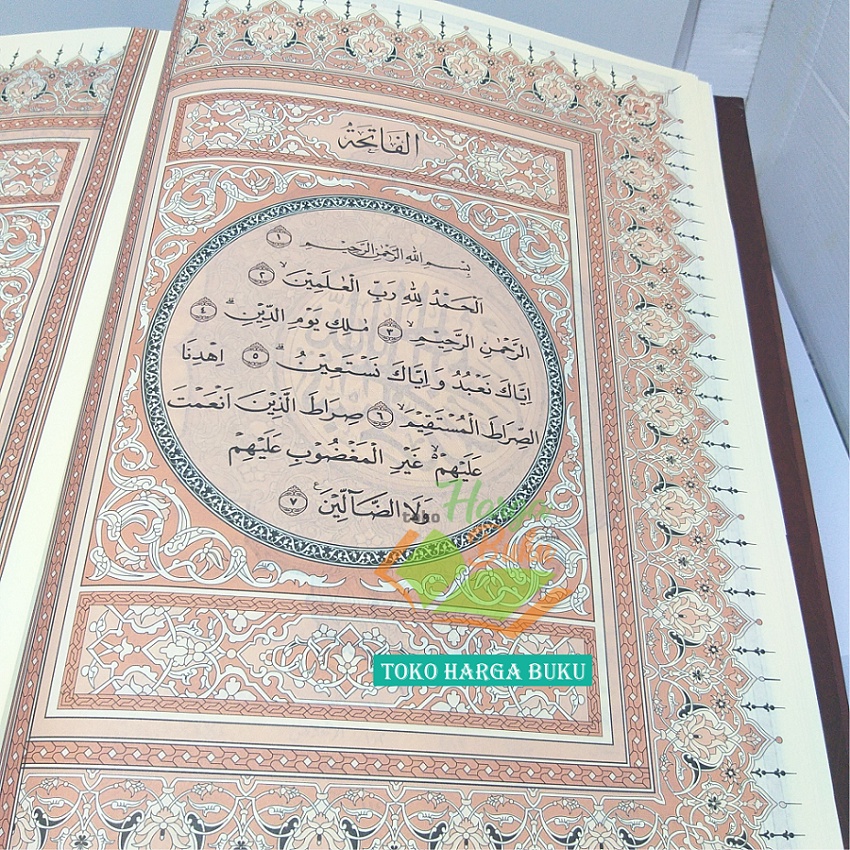 الفاتحة
بِسْمِ اللهِ الرَّحْمٰنِ الرَّحِيْمِ ١
اَلْحَمْدُ لِلّٰهِ رَبِّ الْعٰلَمِيْنَ ۙ ٢
الرَّحْمٰنِ الرَّحِيْمِ ۙ ٣ مٰلِكِ يَوْمِ الدِّيْنِ ۗ ٤
اِيَّاكَ نَعْبُدُ وَاِيَّاكَ نَسْتَعِيْنُ ۗ ٥ اِهْدِنَا
الصِّرَاطَ الْمُسْتَقِيْمَ ۙ ٦ صِرَاطَ الَّذِيْنَ اَنْعَمْتَ
عَلَيْهِمْ ەۙ غَيْرِ الْمَغْضُوْبِ عَلَيْهِمْ
وَلَا الضَّاۤلِّيْنَ ࣖ ٧
toko Harga Buku
TOKO HARGA BUKU